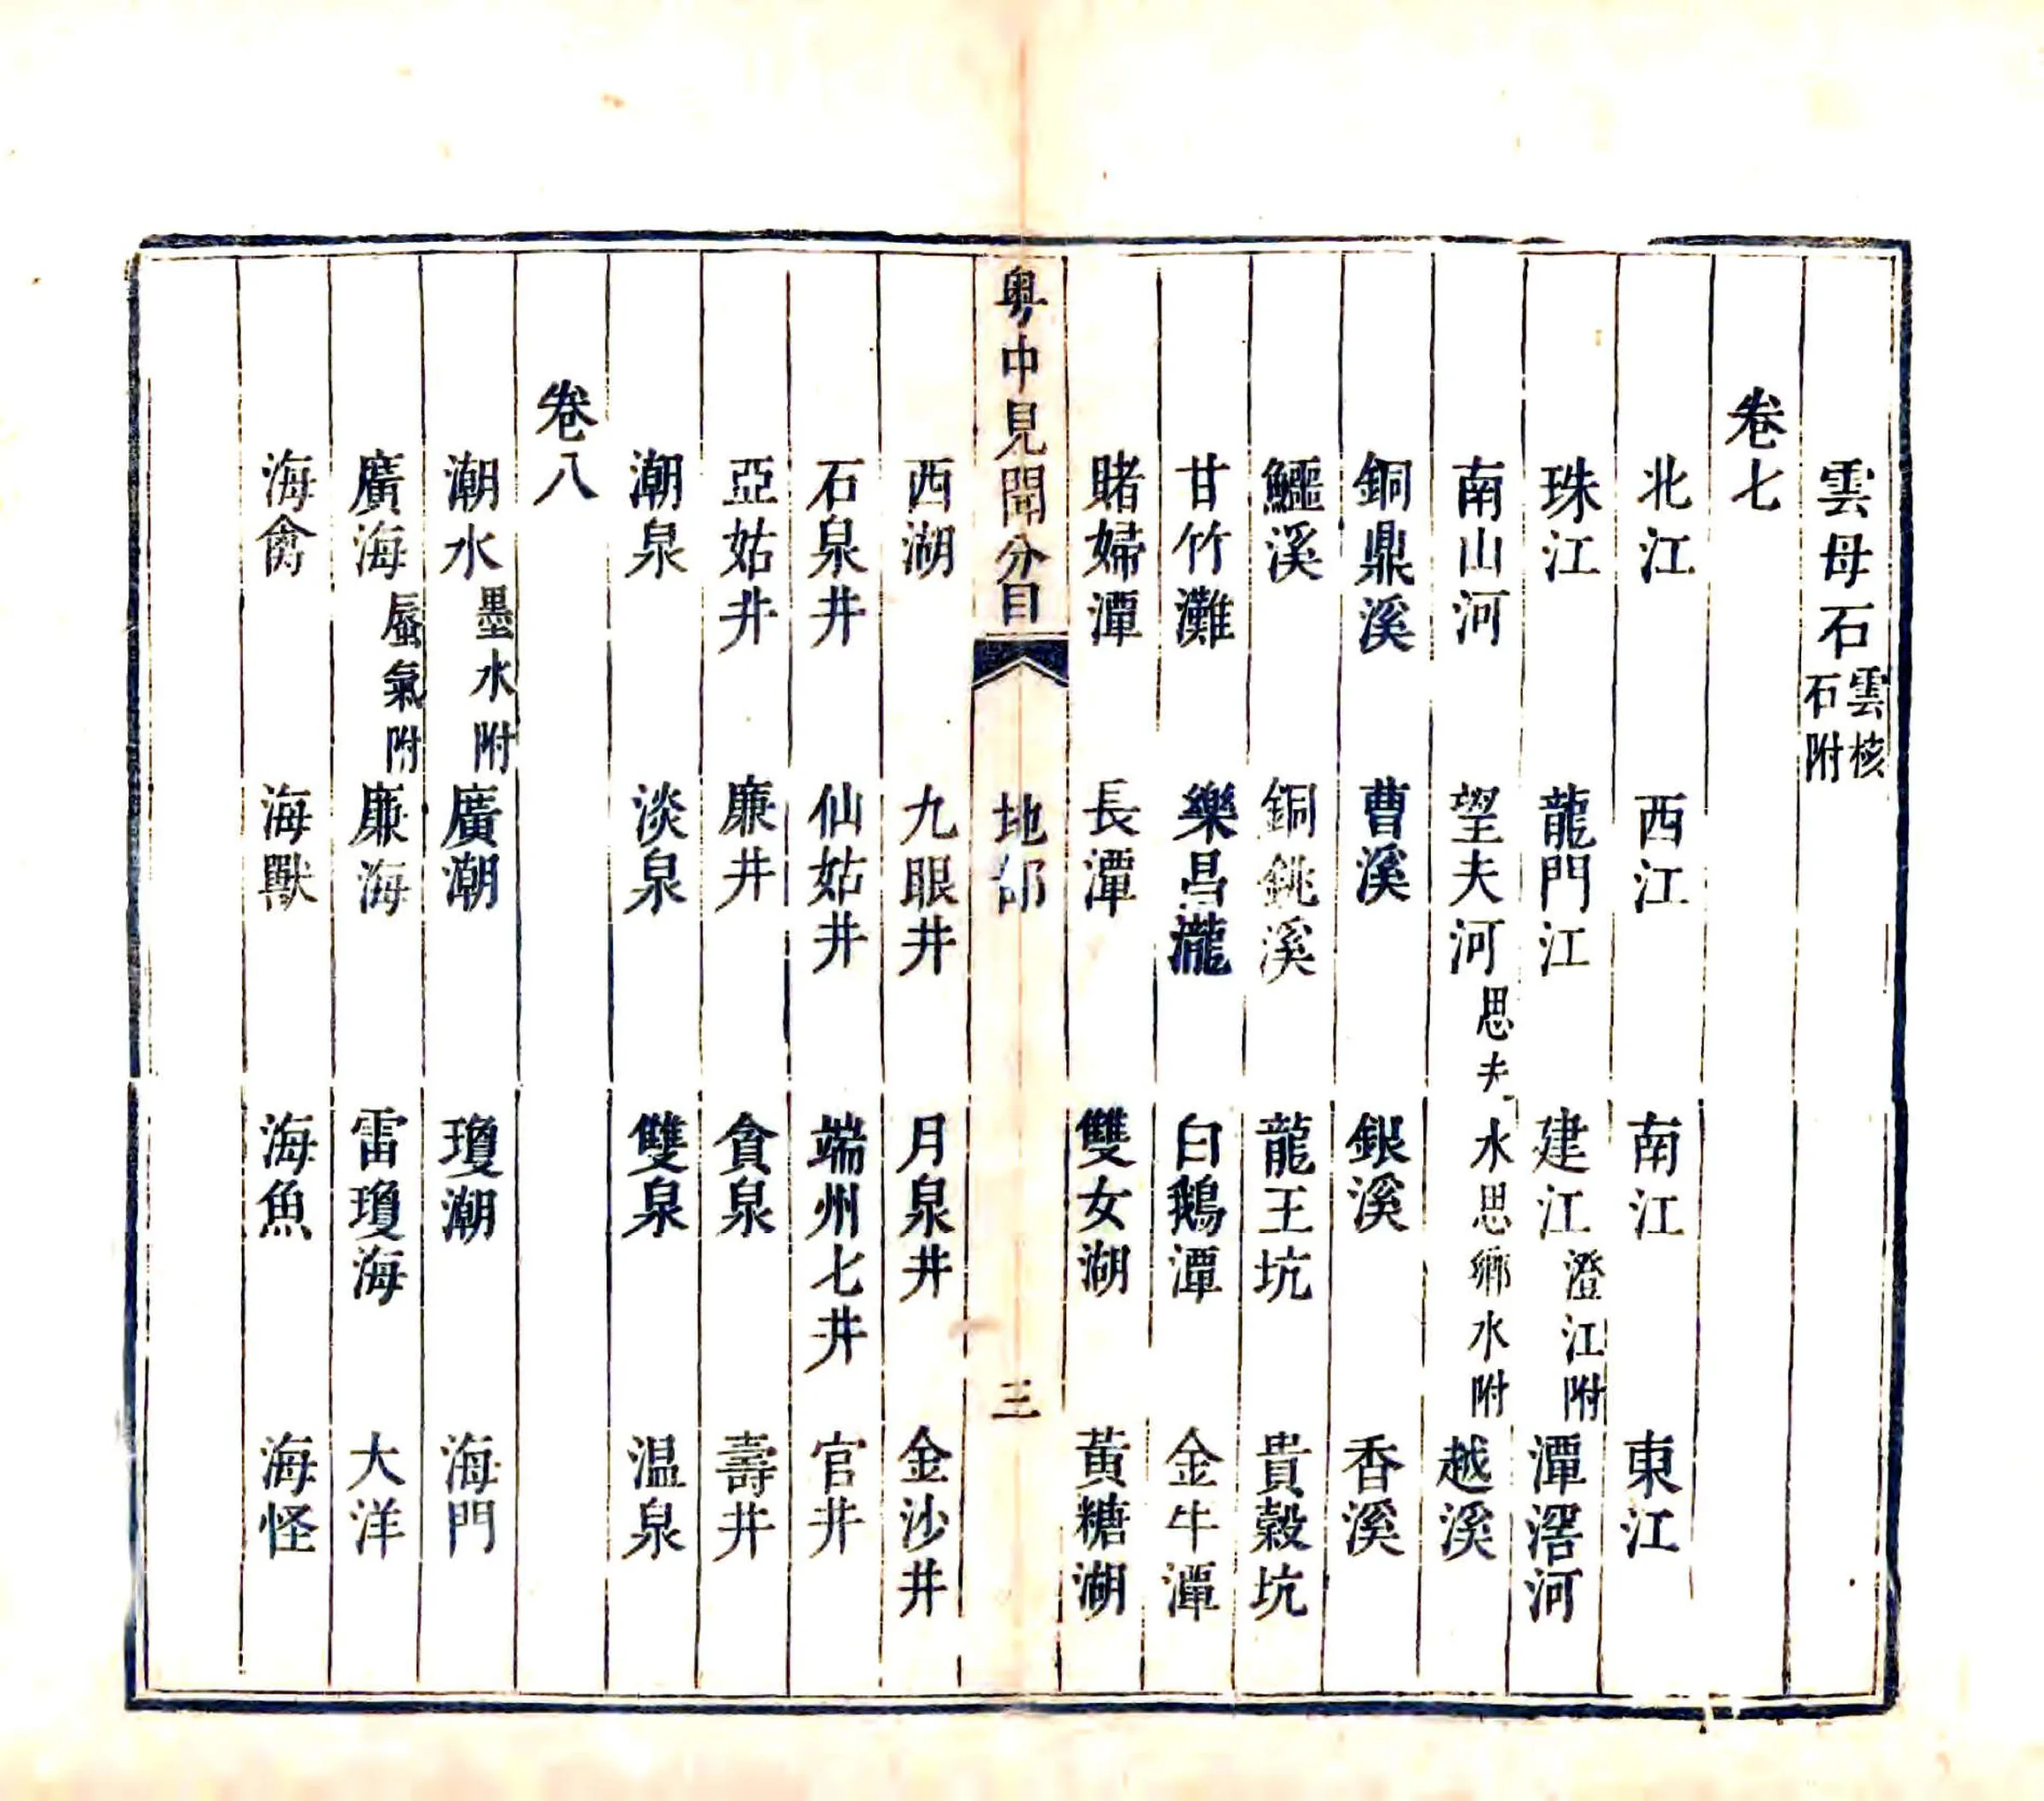 雲母石雲核石附
卷七
北江　西江　南江　東江
珠江　龍門江　建江澄江附　潭滘河
南山河　望夫河思夫水思鄉水附　越溪
銅鼎溪　曹溪　銀溪　香溪
鱷溪　銅銚溪　龍王坑　貴穀坑
甘竹灘　樂昌瀧　白鵝潭　金牛潭
賭婦潭　長潭　雙女湖　黃糖湖
粵中見聞分目　地部　三
西湖　九眼井　月泉井　金沙井
石泉井　仙姑井　端州七井　官井
亞姑井　廉井　貪泉　壽井
潮泉　淡泉　雙泉　温泉
卷八
潮水墨水附　廣潮　瓊潮　海門
廣海蜃氣附　廉海　雷瓊海　大洋
海禽　海獸　海魚　海怪